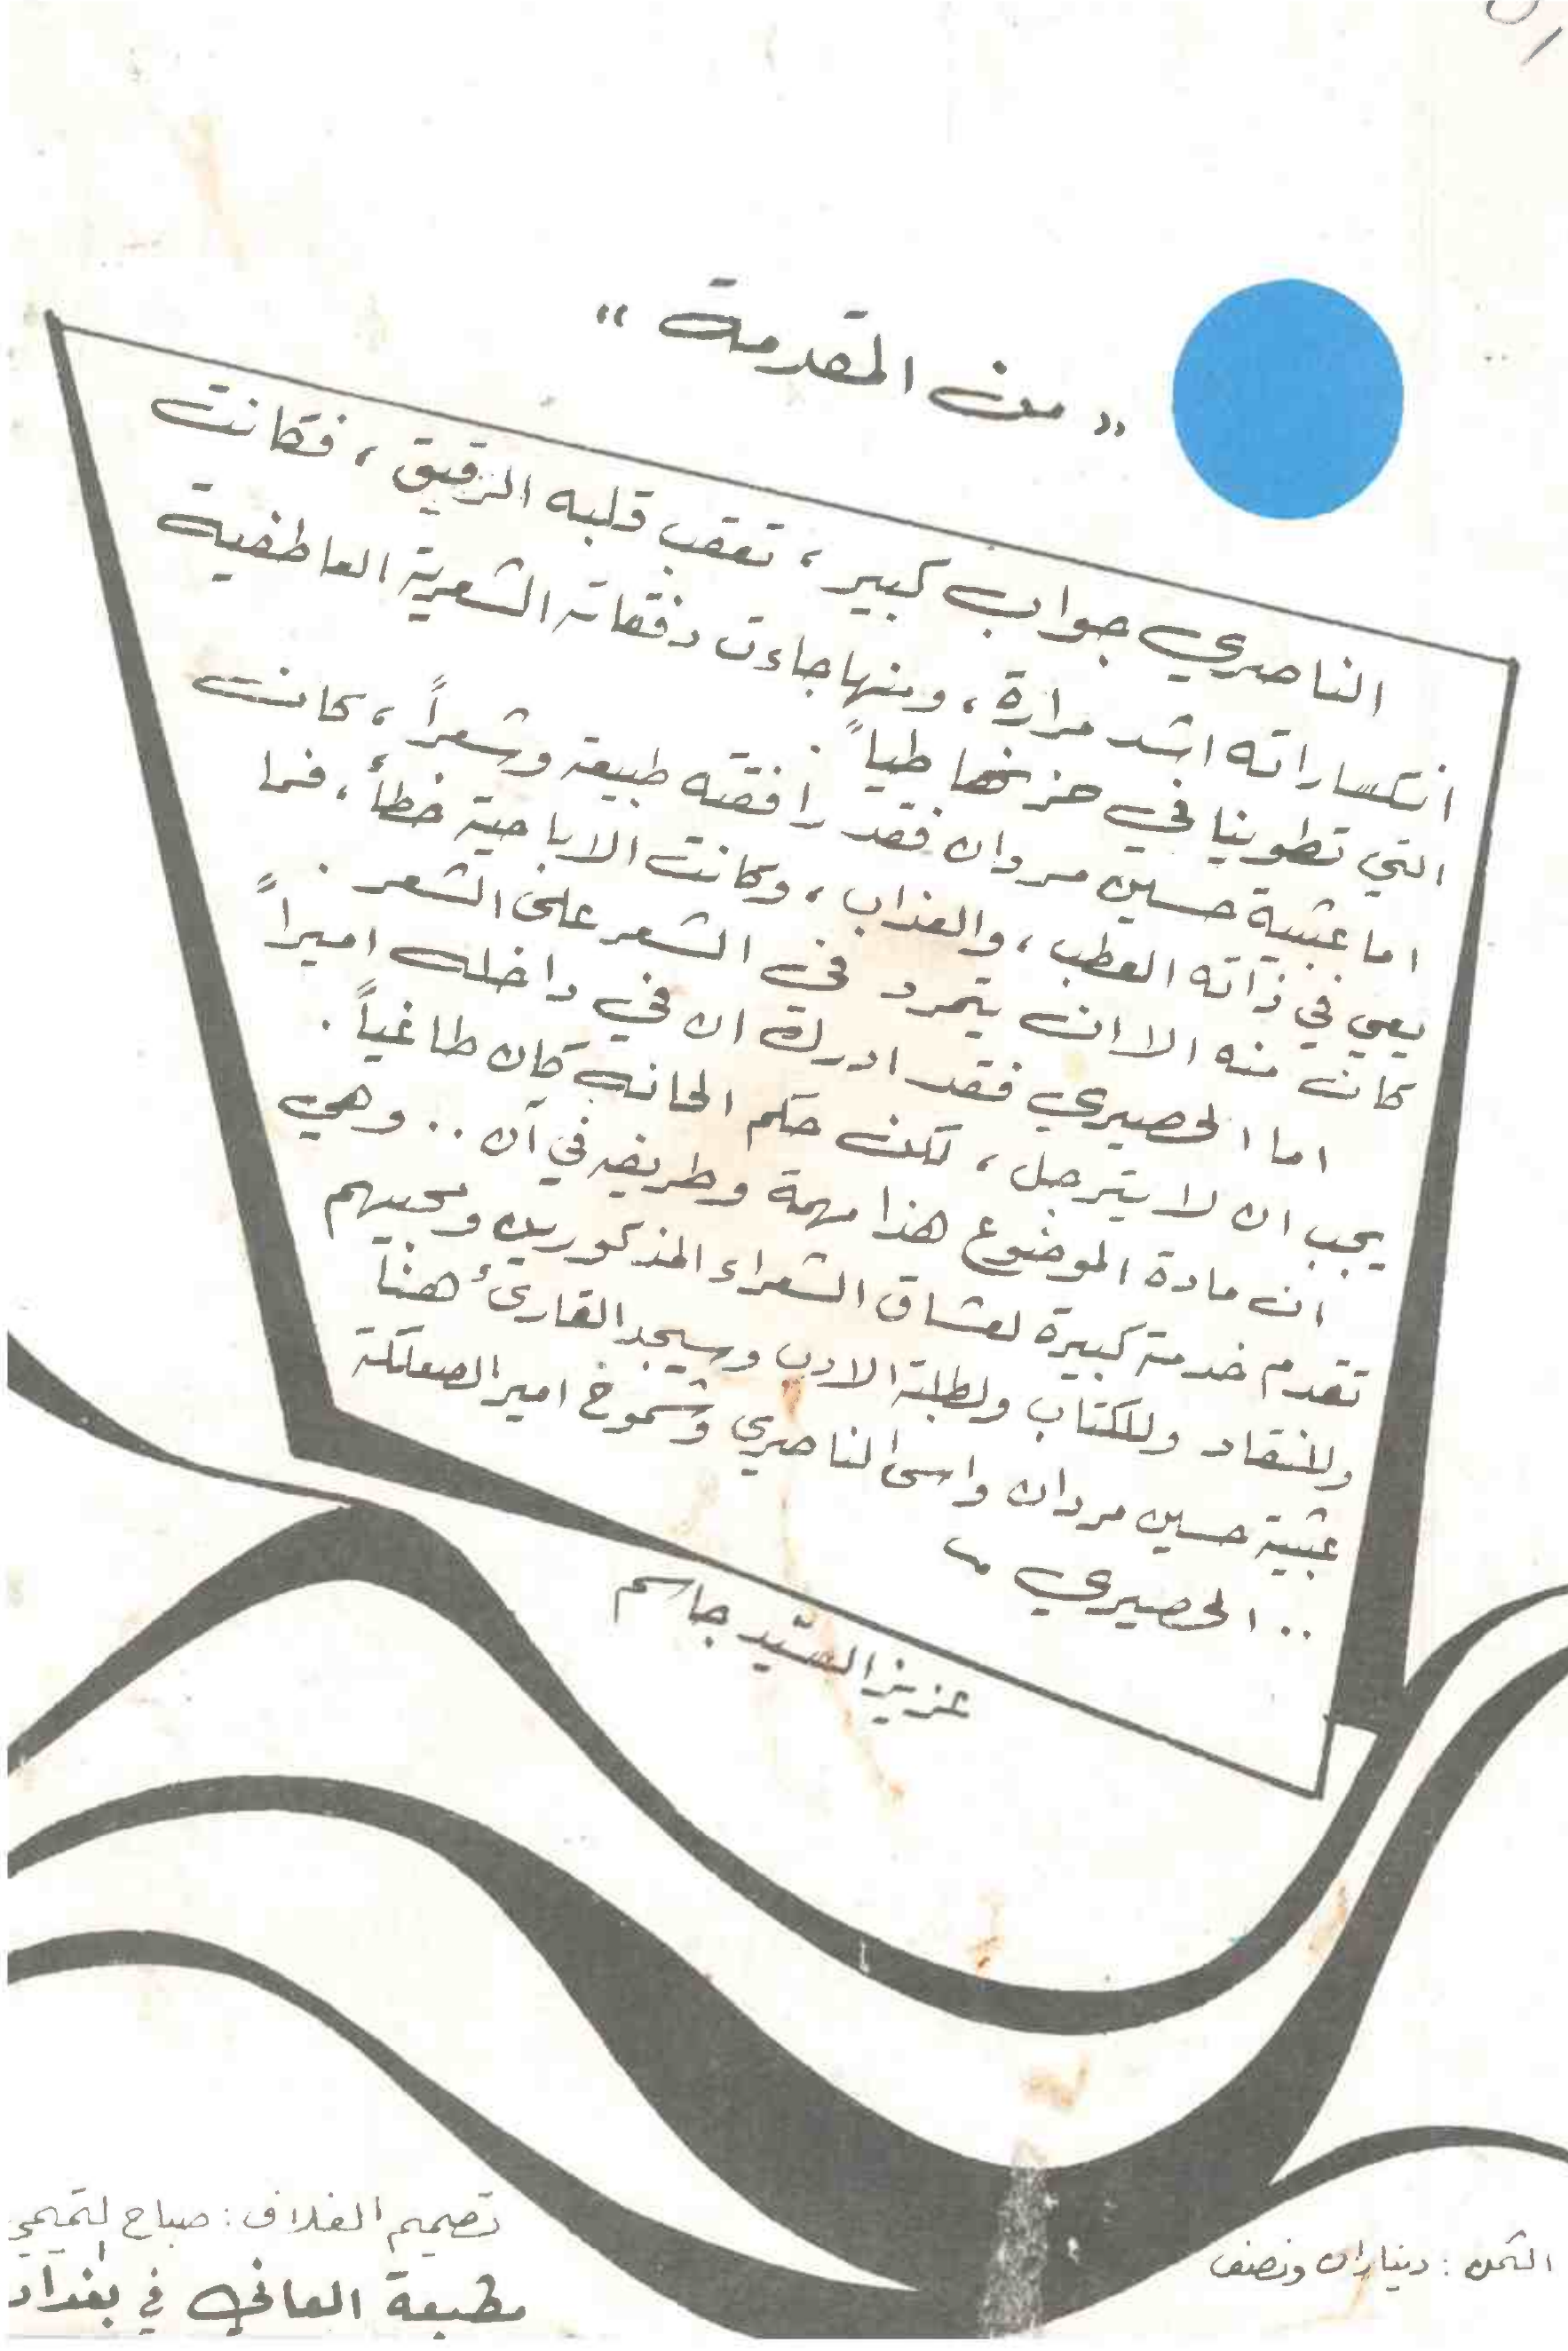 « من المقدمة »
الناصري جواب كبير ، تعقب قلبه الرقيق ، فكانت
انكساراته اشد مرارة ، ومنها جاءت دفقاته الشعرية العاطفية
التي تطوينا في حزنها طياً .
اما عبثية حسين مردان فقد رافقته طبيعة وشعراً ، كانت
يعي في ذاته العطب ، والعذاب ، وكانت الاباحية خطأ ، فما
كان منه الا ان يتمرد في الشعر على الشعر .
اما الحصيري فقد ادرك ان في داخله اميراً
يجب ان لا يترجل ، لكن حكم الحانه كان طاغياً .
ان مادة الموضوع هذا مهمة وطريفه في آن .. وهي
تقدم خدمة كبيرة لعشاق الشعراء المذكورين ومحبيهم
وللنقاد وللكتاب ولطلبة الادب وسيجد القارئ هنا
عبثية حسين مردان واسى الناصري وشموخ امير الصعلكة
.. الحصيري
عزيز السيّد جاسم
الثمن : ديناران ونصف
تصميم الغلاف : صباح التميمي
مطبعة العاني في بغداد